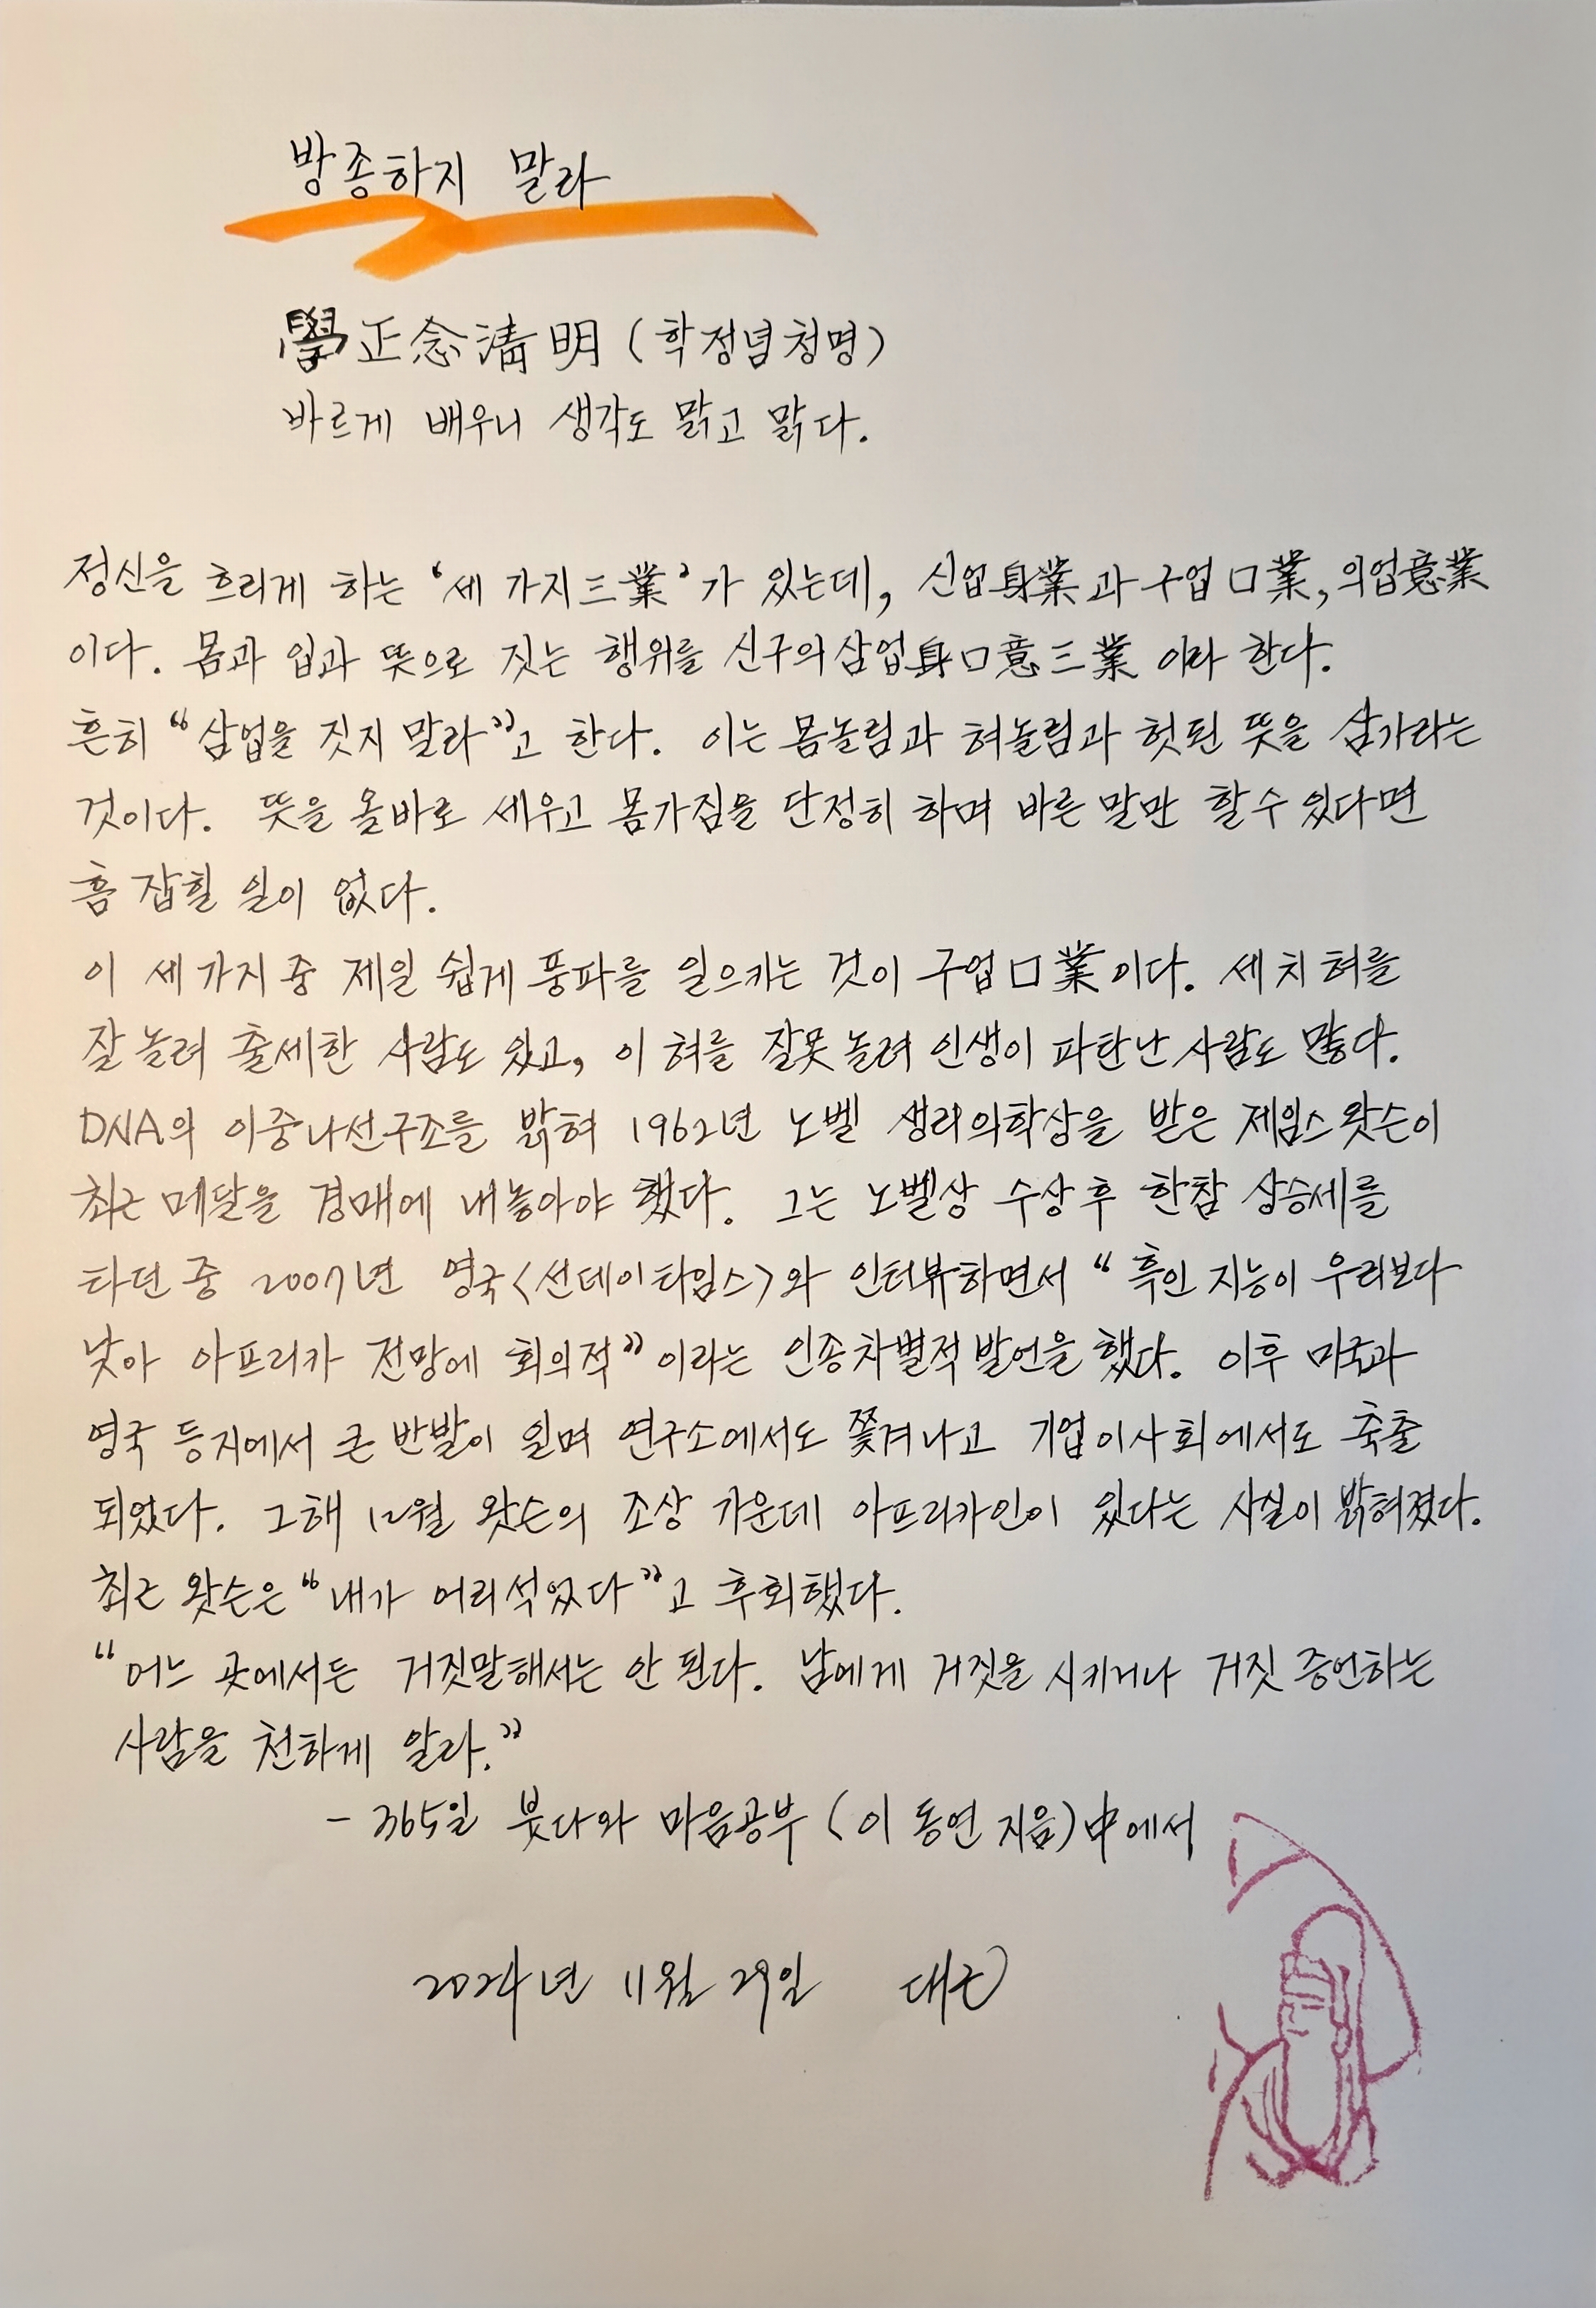 방종하지 말라
學正念淸明(학정념청명)
바르게 배우니 생각도 맑고 맑다.
정신을 흐리게 하는 '세 가지三業'가 있는데, 신업身業과 구업口業, 의업意業
이다. 몸과 입과 뜻으로 짓는 행위를 신구의삼업身口意三業 이라 한다.
흔히 "삼업을 짓지 말라"고 한다. 이는 몸놀림과 혀놀림과 헛된 뜻을 삼가라는
것이다. 뜻을 올바로 세우고 몸가짐을 단정히 하며 바른 말만 할 수 있다면
흠 잡힐 일이 없다.
이 세 가지 중 제일 쉽게 풍파를 일으키는 것이 구업口業이다. 세 치 혀를
잘 놀려 출세한 사람도 있고, 이 혀를 잘못 놀려 인생이 파탄난 사람도 많다.
DNA의 이중나선구조를 밝혀 1962년 노벨 생리의학상을 받은 제임스 왓슨이
최근 메달을 경매에 내놓아야 했다. 그는 노벨상 수상 후 한참 상승세를
타던 중 2007년 영국<선데이타임스>와 인터뷰하면서 "흑인 지능이 우리보다
낮아 아프리카 전망에 회의적"이라는 인종차별적 발언을 했다. 이후 미국과
영국 등지에서 큰 반발이 일며 연구소에서도 쫓겨나고 기업이사회에서도 축출
되었다. 그해 12월 왓슨의 조상 가운데 아프리카인이 있다는 사실이 밝혀졌다.
최근 왓슨은 "내가 어리석었다"고 후회했다.
"어느 곳에서든 거짓말해서는 안 된다. 남에게 거짓을 시키거나 거짓 증언하는
사람을 천하게 알라."
- 365일 붓다와 마음공부 (이 동연 지음)中에서
2024년 11월 29일 대근